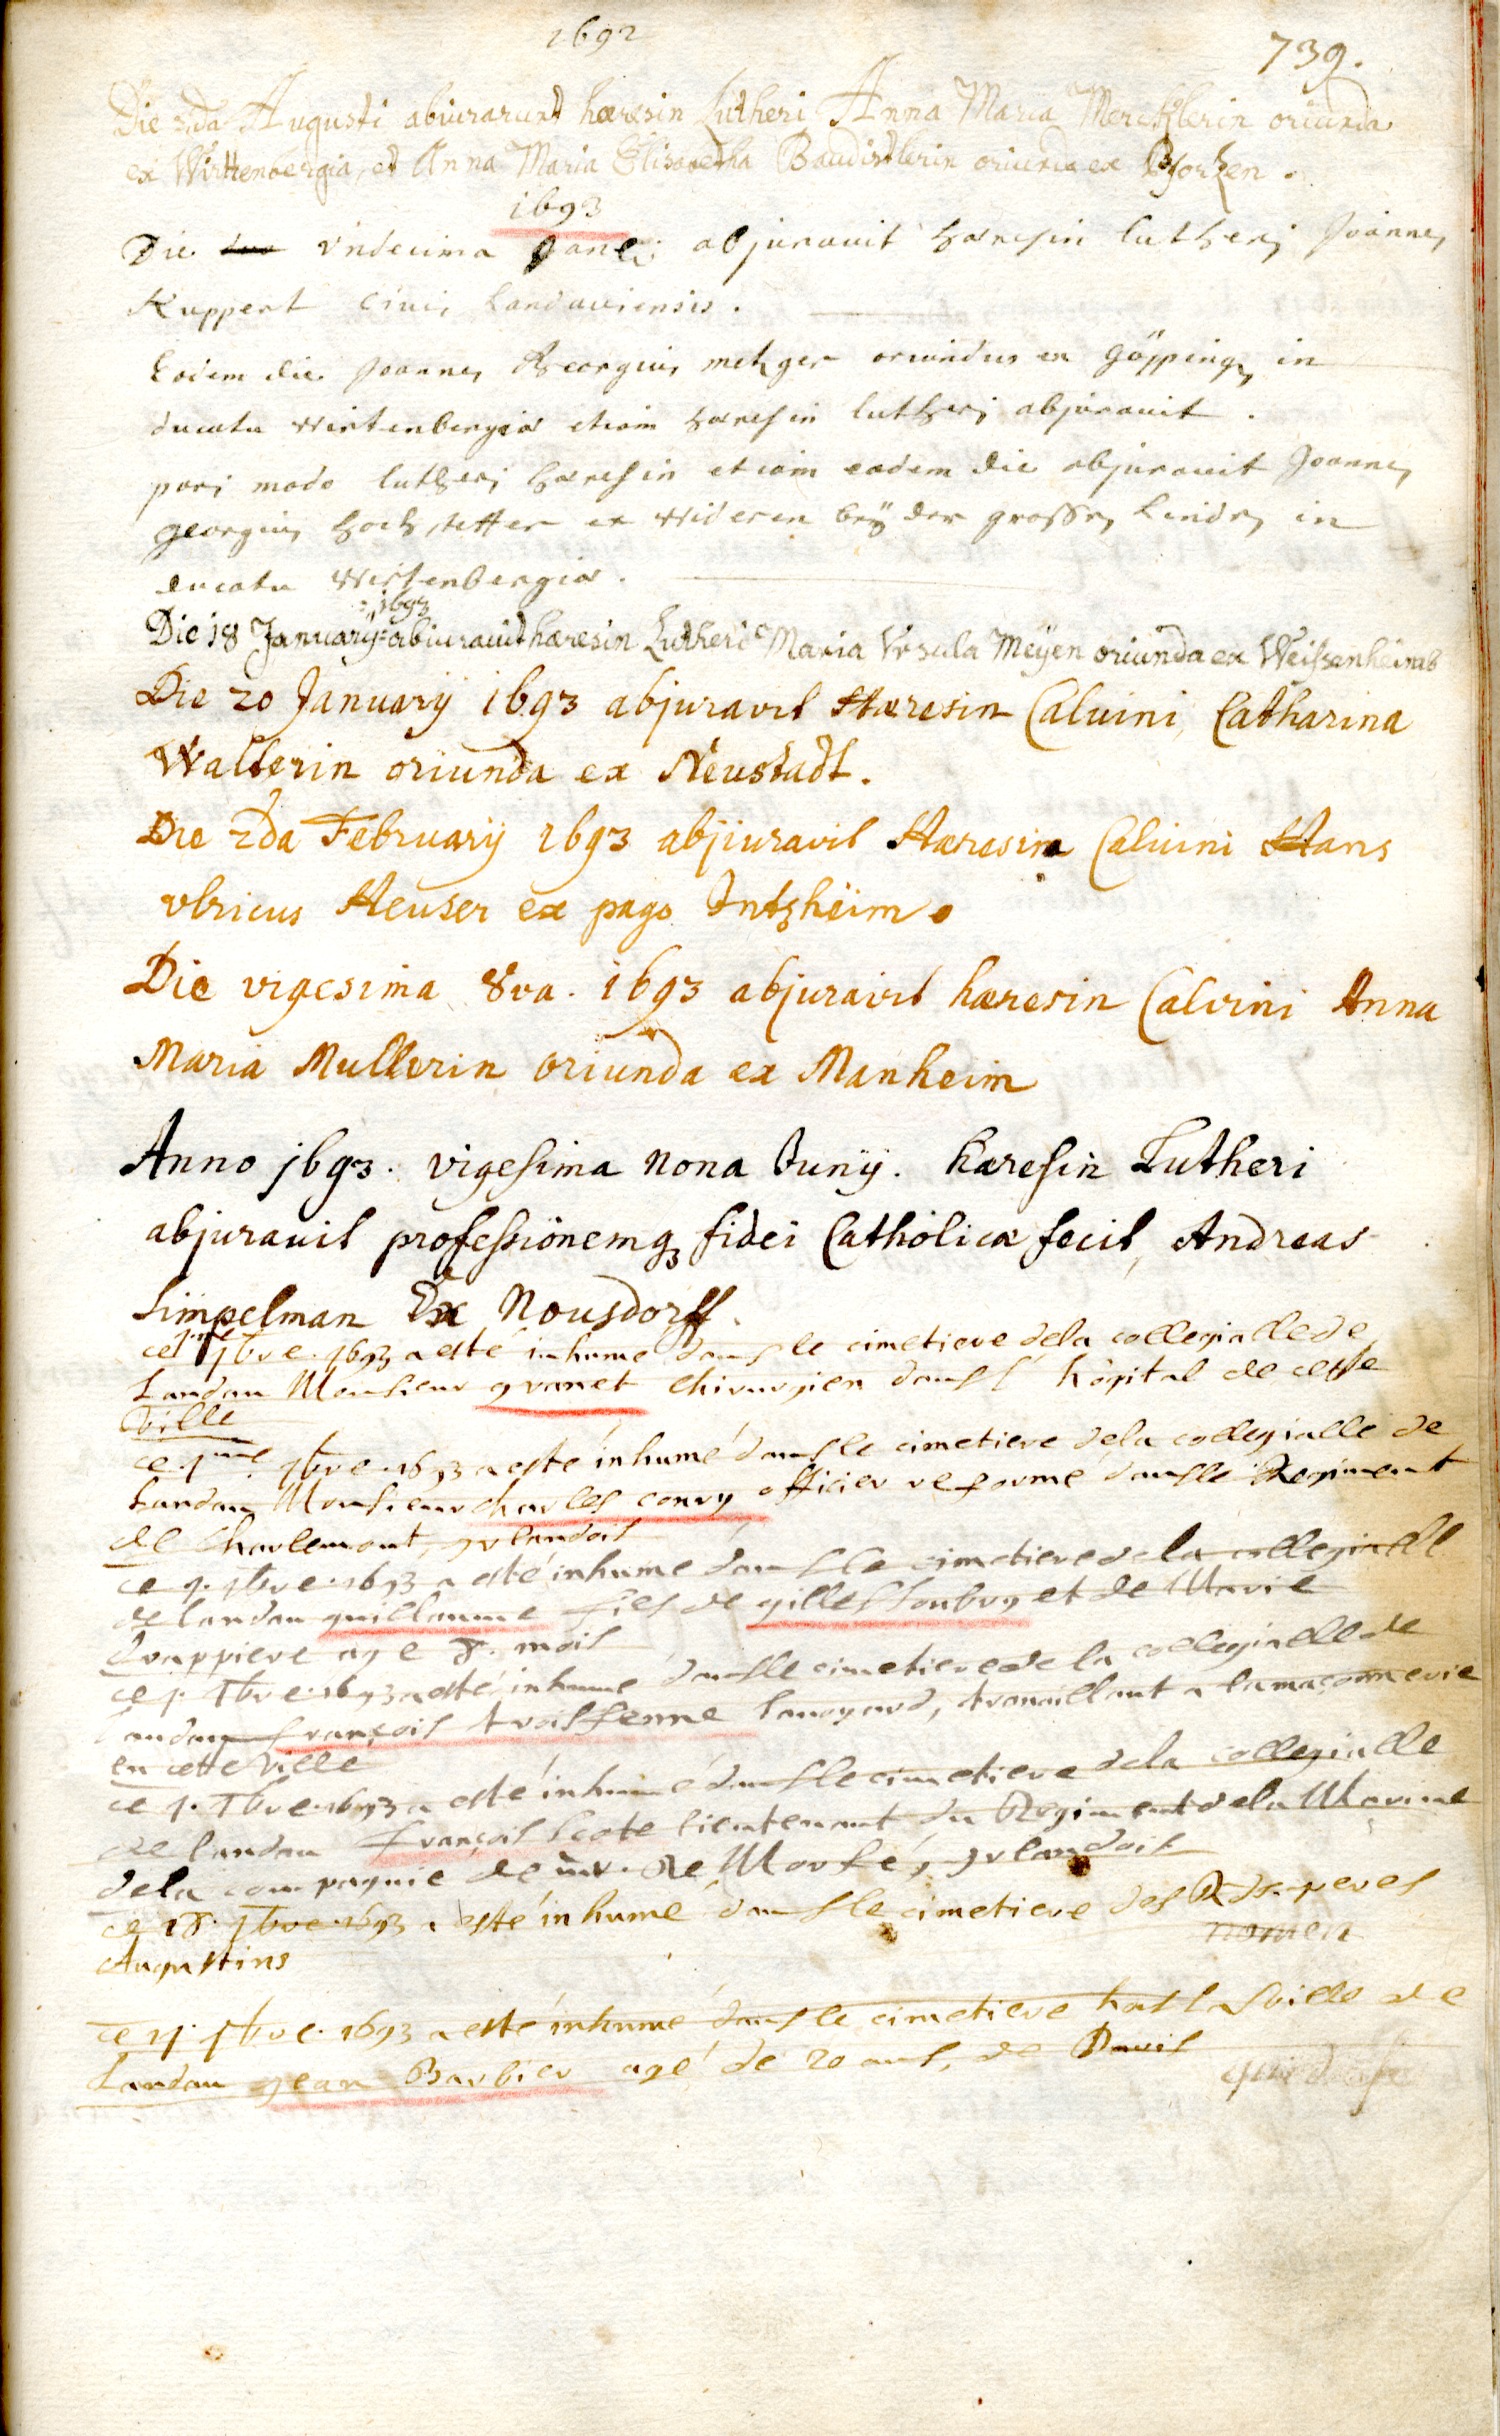 1692
739.
Die 2da Augusti abiurarunt hæresin Lutheri Anna Maria Mercklerin oriunda
ex Wirttenbergia, et Anna Maria Elisabetha Baudistlerin oriunda ex Pforhen.
1693
Die undecima Janei abjurauit hæresin lutherj Joannes
Ruppert Civis Landauiensis.
Eodem die Joannes Georgius metzger oriundus ex Göpping in
ducatu wirtenbergiæ etiam hæresin lutherj abjurauit.
parj modo lutherj hæresin etiam eadem die abjurauit Joannes
georgius hochstetter ex Wideren beÿ der grossen Linden in
ducatu Wirtenbergiæ.
1693
Die 18 Januarÿ abiurauit hæresin Lutheri Maria Vrsula Meÿen oriunda ex Weissenheimb
Die 20 Januarÿ 1693 abjuravit Hæresin Calvini, Catharina
Walterin oriunda ex Neustadt.
Die 2da Februarÿ 1693 abjiuravit Hæresim Caluini Hans
vlricus Heuser ex pago Intzheim.
Die vigesima 8va. 1693 abjuravit hæresin Calvini Anna
Maria Mullerin oriunda ex Manheim
Anno 1693. vigesima nona Junÿ. hæresin Lutheri
abjurauit professionemq fidei Catholicæ fecit, Andreas
Simpelman Ex Nousdorff.
ce 1me 9bre. 1693 a esté inhumé dans le cimetiere dela collegialle de
Landau Monsieur granet chirurgien dans l'hôpital de cette
Ville
ce 1me. 9bre. 1693 a esté inhumé dans le cimetiere dela collegialle de
Landau Monsieur charles conry officier reformé dans le Regiment
de Charlemont, yrlandois
ce 9. 9bre. 1693 a esté inhumé dans le cimetiere de la collegialle
de landau guillaume fils de gilles Soubry et de Marie
Drappiere agé 8. mois
ce 9. 9bre. 1693 a esté inhumé dans le cimetiere de la collegialle de
Landau françois troisfenne, travaillant a la maconnerie
en cette Ville
ce 9. 9bre. 1693 a esté inhumé dans le cimetiere dela collegialle
de landau françois Scote lieutenant du Regiment dela Marine
dela compagnie de mr. de, yrlandois
ce 18. 9bre. 1693 a esté inhumé dans le cimetiere des Rds. peres
nomen
Augustins
ce 9bre. 1693 a esté inhumé dans le cimetiere hors la Ville de
Landau Jean Barbier agé de 20 ans, de Paris